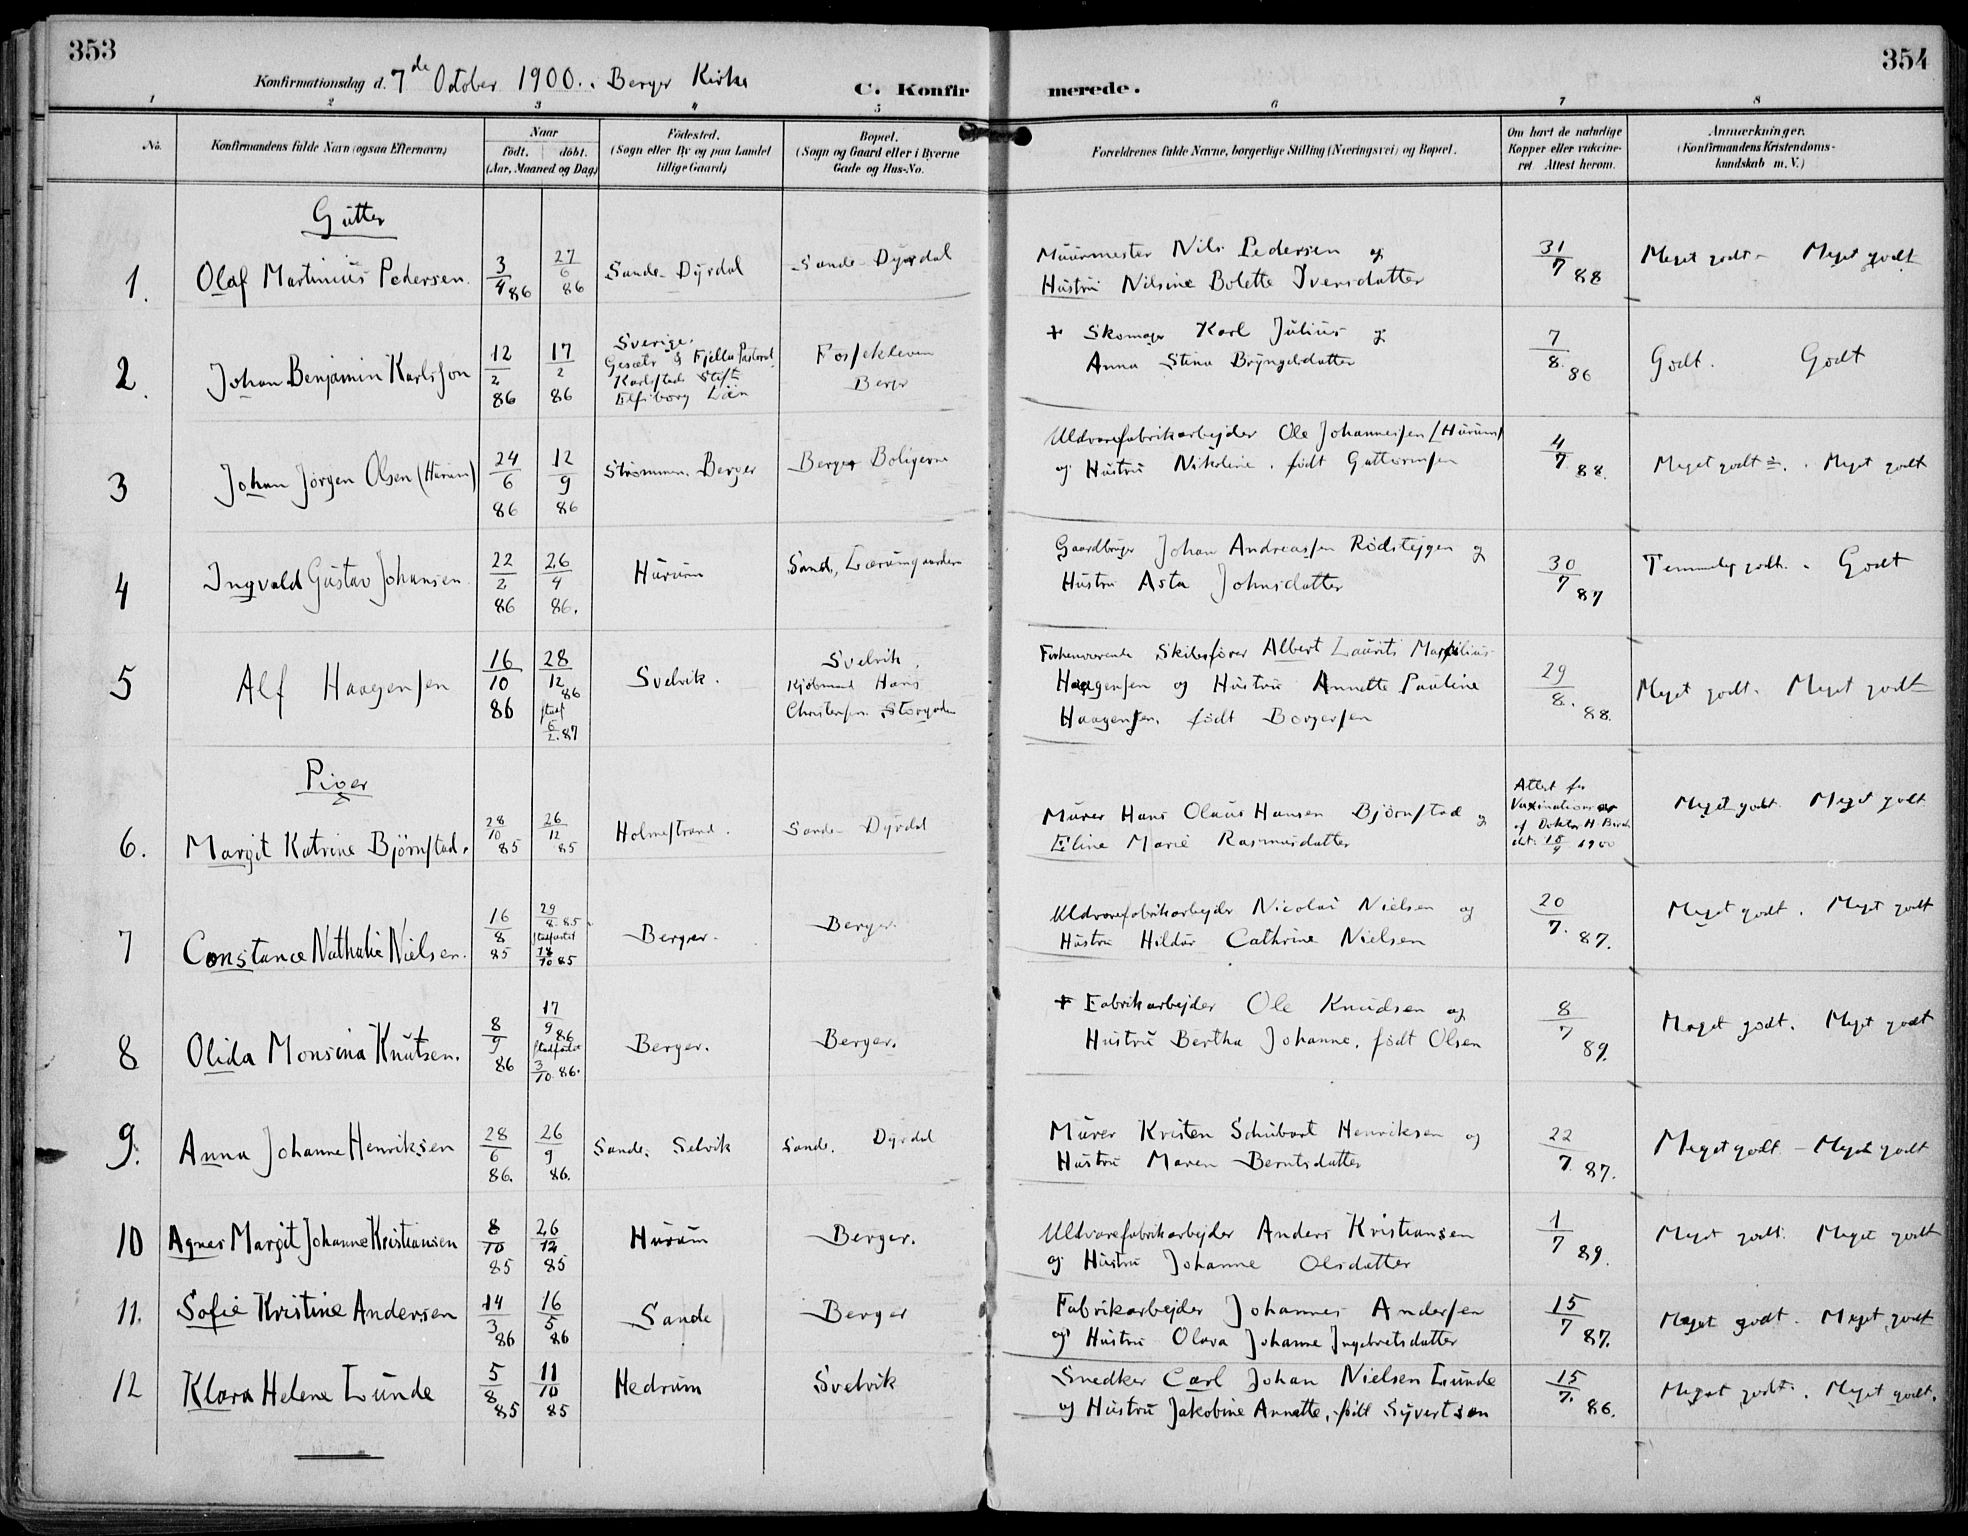 353
354
Konfirmationsdag d. 7de October 1900. Berger Kirke
C. Konfirmerede.
1 2 3 4 5 6 7 8
No.
Konfirmandens fulde Navn (ogsaa Efternavn)
Naar
født. døbt.
(Aar, Maaned og Dag)
Fødested.
(Sogn eller By og paa Landet
tillige Gaard)
Bopæl.
(Sogn og Gaard eller i Byerne
Gade og Hus-No.
Forældrenes fulde Navne, borgerlige Stilling (Næringsvei) og Bopæl.
Om havt de naturlige
Kopper eller vakcine-
ret Attest herom.
Anmærkninger.
(Konfirmandens Kristendoms-
kundskab m. V.)
Gutter
1. Olaf Martinius Pedersen. 3/4 86 27/6 86 Sande - Dyrdal Sande - Dyrdal Muurmester Nils Pedersen og
Hustru Nilsine Bolette Iversdatter 31/7 88 Meget godt - Meget godt
2. Johan Benjamin Karlsson 12/2 86 17/2 86 Sverige.
Karlstads Stift
Elfsborg Län
Fossekleven
Berger
+ Skomager Karl Julius og
Anna Stina Bryngelsdatter 7/8. 86 Godt. Godt
3 Johan Jørgen Olsen (Hurum) 24/6 86 12/9 86 Strømmen. Berger Berger Boligerne Uldvarefabrikarbejder Ole Johannessen (Hurum)
og Hustru Nikoline. født Guttormsen 4/7 88. Meget godt ÷. Meget godt
4 Ingvald Gustav Johansen. 22/2 86 26/4 86. Hurum Sande, Lærumgaarden Gaardbruger Johan Andreassen Rødstejgen og
Hustru Asta Johnsdatter 30/7 87 Temmelig godt. - Godt
5 Alf Haagensen 16/10 86 28/12 86
stadf
6/2. 87 Svelvik. Svelvik.
Kjøbmand Hans
Christensen. Storgaden
Forhenværende Skibsfører Albert Laurits Marsilius
Haagensen og Hustru Annette Pauline
Haagensen. født Borgersen 29/8. 88. Meget godt. Meget godt
Piger
6. Margit Katrine Bjørnstad. 28/10 85 26/12 85 Holmestrand. Sande - Dyrdal Murer Hans Olaus Hansen Bjørnstad og
Eline Marie Rasmusdatter Attest for
Vaxination
af Doktor H
dat. 15/9 1900 Meget godt Meget godt
7 Constance Nathalie Nielsen. 16/8 85 29/8. 85.
stadfæstet
18/10 85 Berger. Berger. Uldvarefabrikarbejder Nicolai Nielsen og
Hustru Hildur Cathrine Nielsen 20/7. 87. Meget godt. Meget godt
8 Olida Monsina Knutsen. 8/9 86 17/9 86
stadfæstet
3/10. 86. Berger. Berger. + Fabrikarbejder Ole Knudsen og
Hustru Bertha Johanne, født Olsen 8/7 89. Meget godt. Meget godt
9. Anna Johanne Henriksen 28/6 86. 26/9 86. Sande. Selvik Sande. Dyrdal Murer Kristen Schubart Henriksen og
Hustru Maren Berntsdatter 22/7. 87. Meget godt - Meget godt
10 Agnes Margit Johanne Kristiansen 8/10 85 26/12 85 Hurum Berger. Uldvarefabrikarbejder Anders Kristiansen
og Hustru Johanne Olsdatter 1/7 89. Meget godt. Meget godt
11. Sofie Kristine Andersen 14/3 86 16/5 86 Sande Berger Fabrikarbejder Johannes Andersen
og Hustru Olava Johanne Ingebretsdatter 15/7 87. Meget godt. Meget godt
12 Klara Helene Lunde 5/8 85 11/10 85 Hedrum Svelvik Snedker Carl Johan Nielsen Lunde
og Hustru Jakobine Annette, født Syvertsen 15/7. 86. Meget godt. Meget godt.